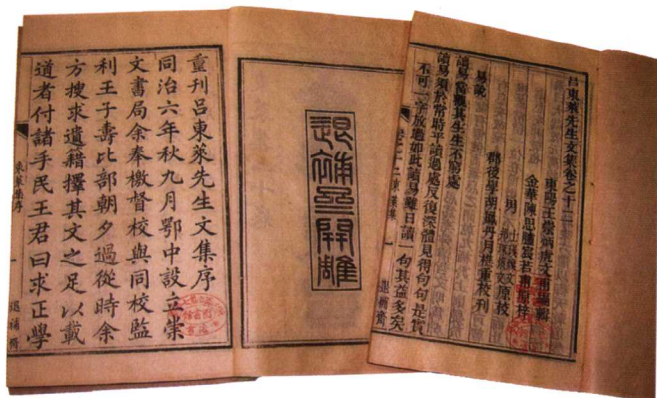 重刊呂東萊先生文集序
同治六年秋九月鄂中設立崇
文書局余奉檄督校與同校監
利王子壽比部朝夕過從時余
方搜求遺籍擇其文之足以載
道者付諸手民王君曰求正學
東萊集序 一 退補齋
退補齋開雕
呂東萊先生文集卷之十二
東陽王崇炳虎文甫編輯
金華陳思臚甫原梓
男原校
郡後學胡鳳丹月樵重校刊
易說
讀易當觀其生生不窮處
讀易須於常時平讀過處反復深體見得句句是實
不可一字放過如此讀易雖日讀一句其益多矣
卷之十二東萊集 一 退補齋